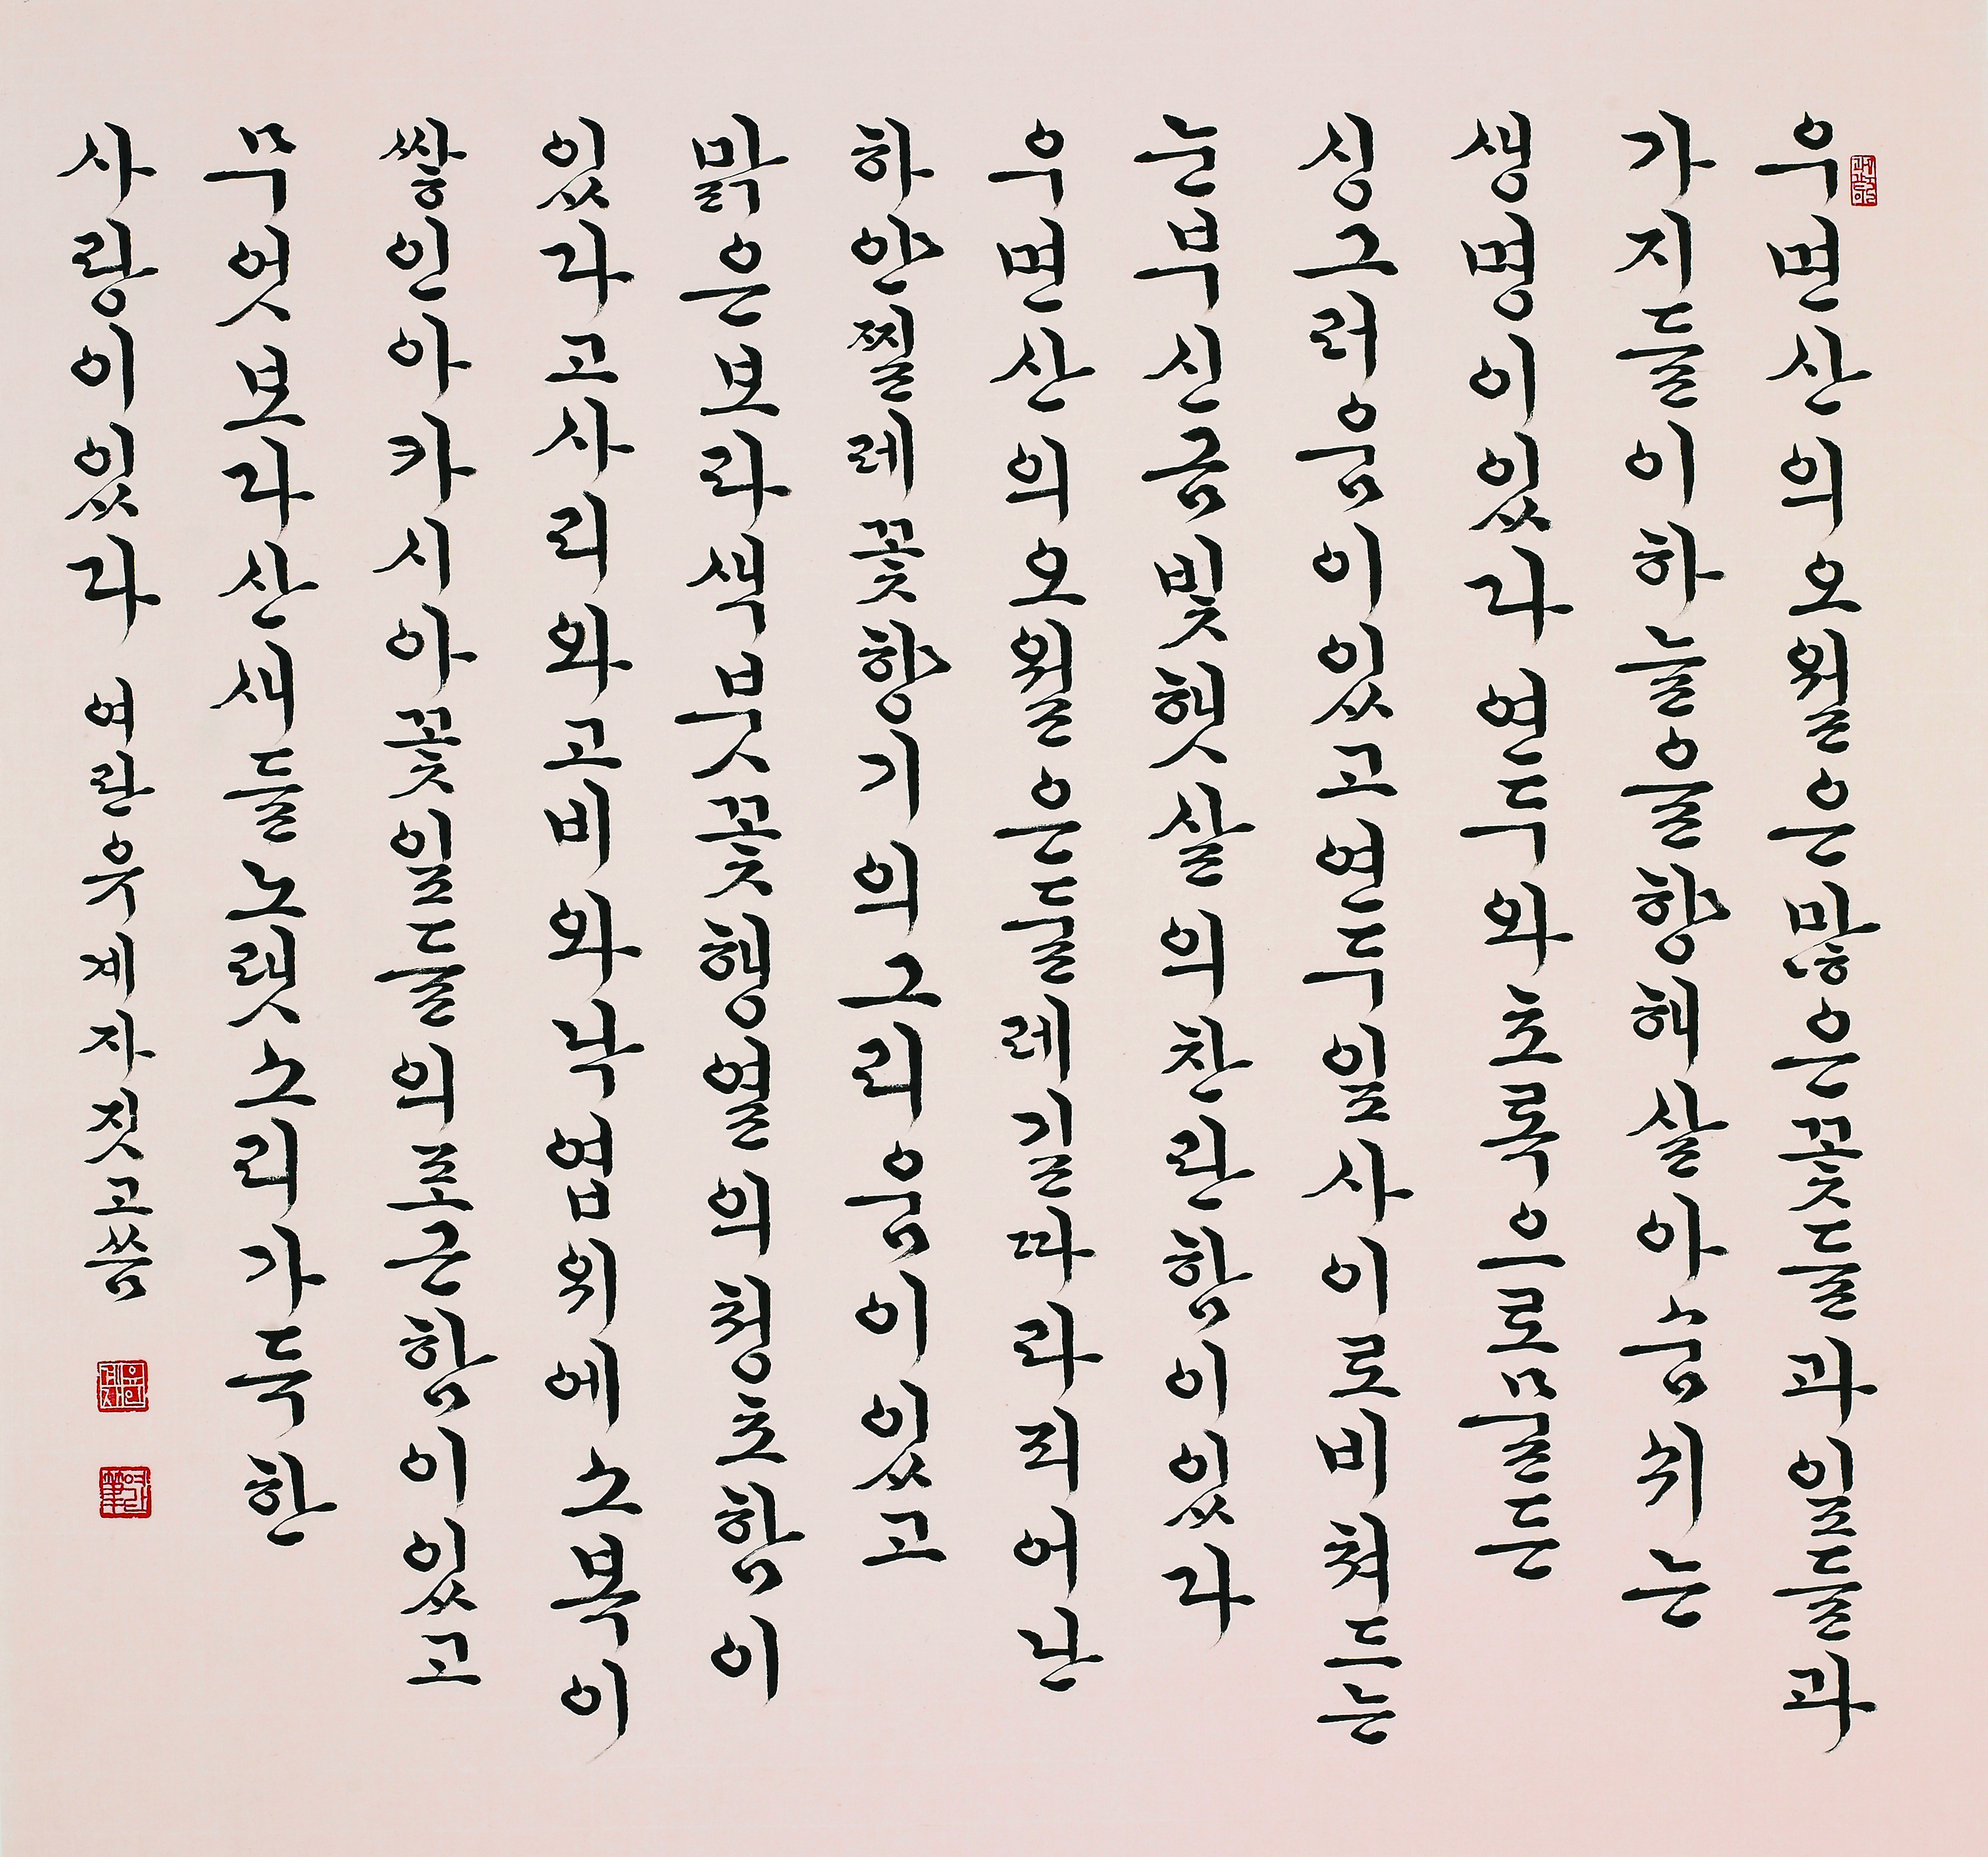 우면산의오월은많은꽃들과잎들과
가지들이하늘을향해살아숨쉬는
생명이있다연두와초록으로물든
싱그러움이있고연두잎사이로비쳐드는
눈부신금빛햇살의찬란함이있다
우면산의오월은둘레길따라피어난
하얀찔레꽃향기의그리움이있고
맑은보라색붓꽃행열의청초함이
있다고사리와고비와낙엽위에소복이
쌓인아카시아꽃잎들의포근함이있고
무엇보다산새들노랫소리가득한
사랑이있다 여란유계자짓고씀